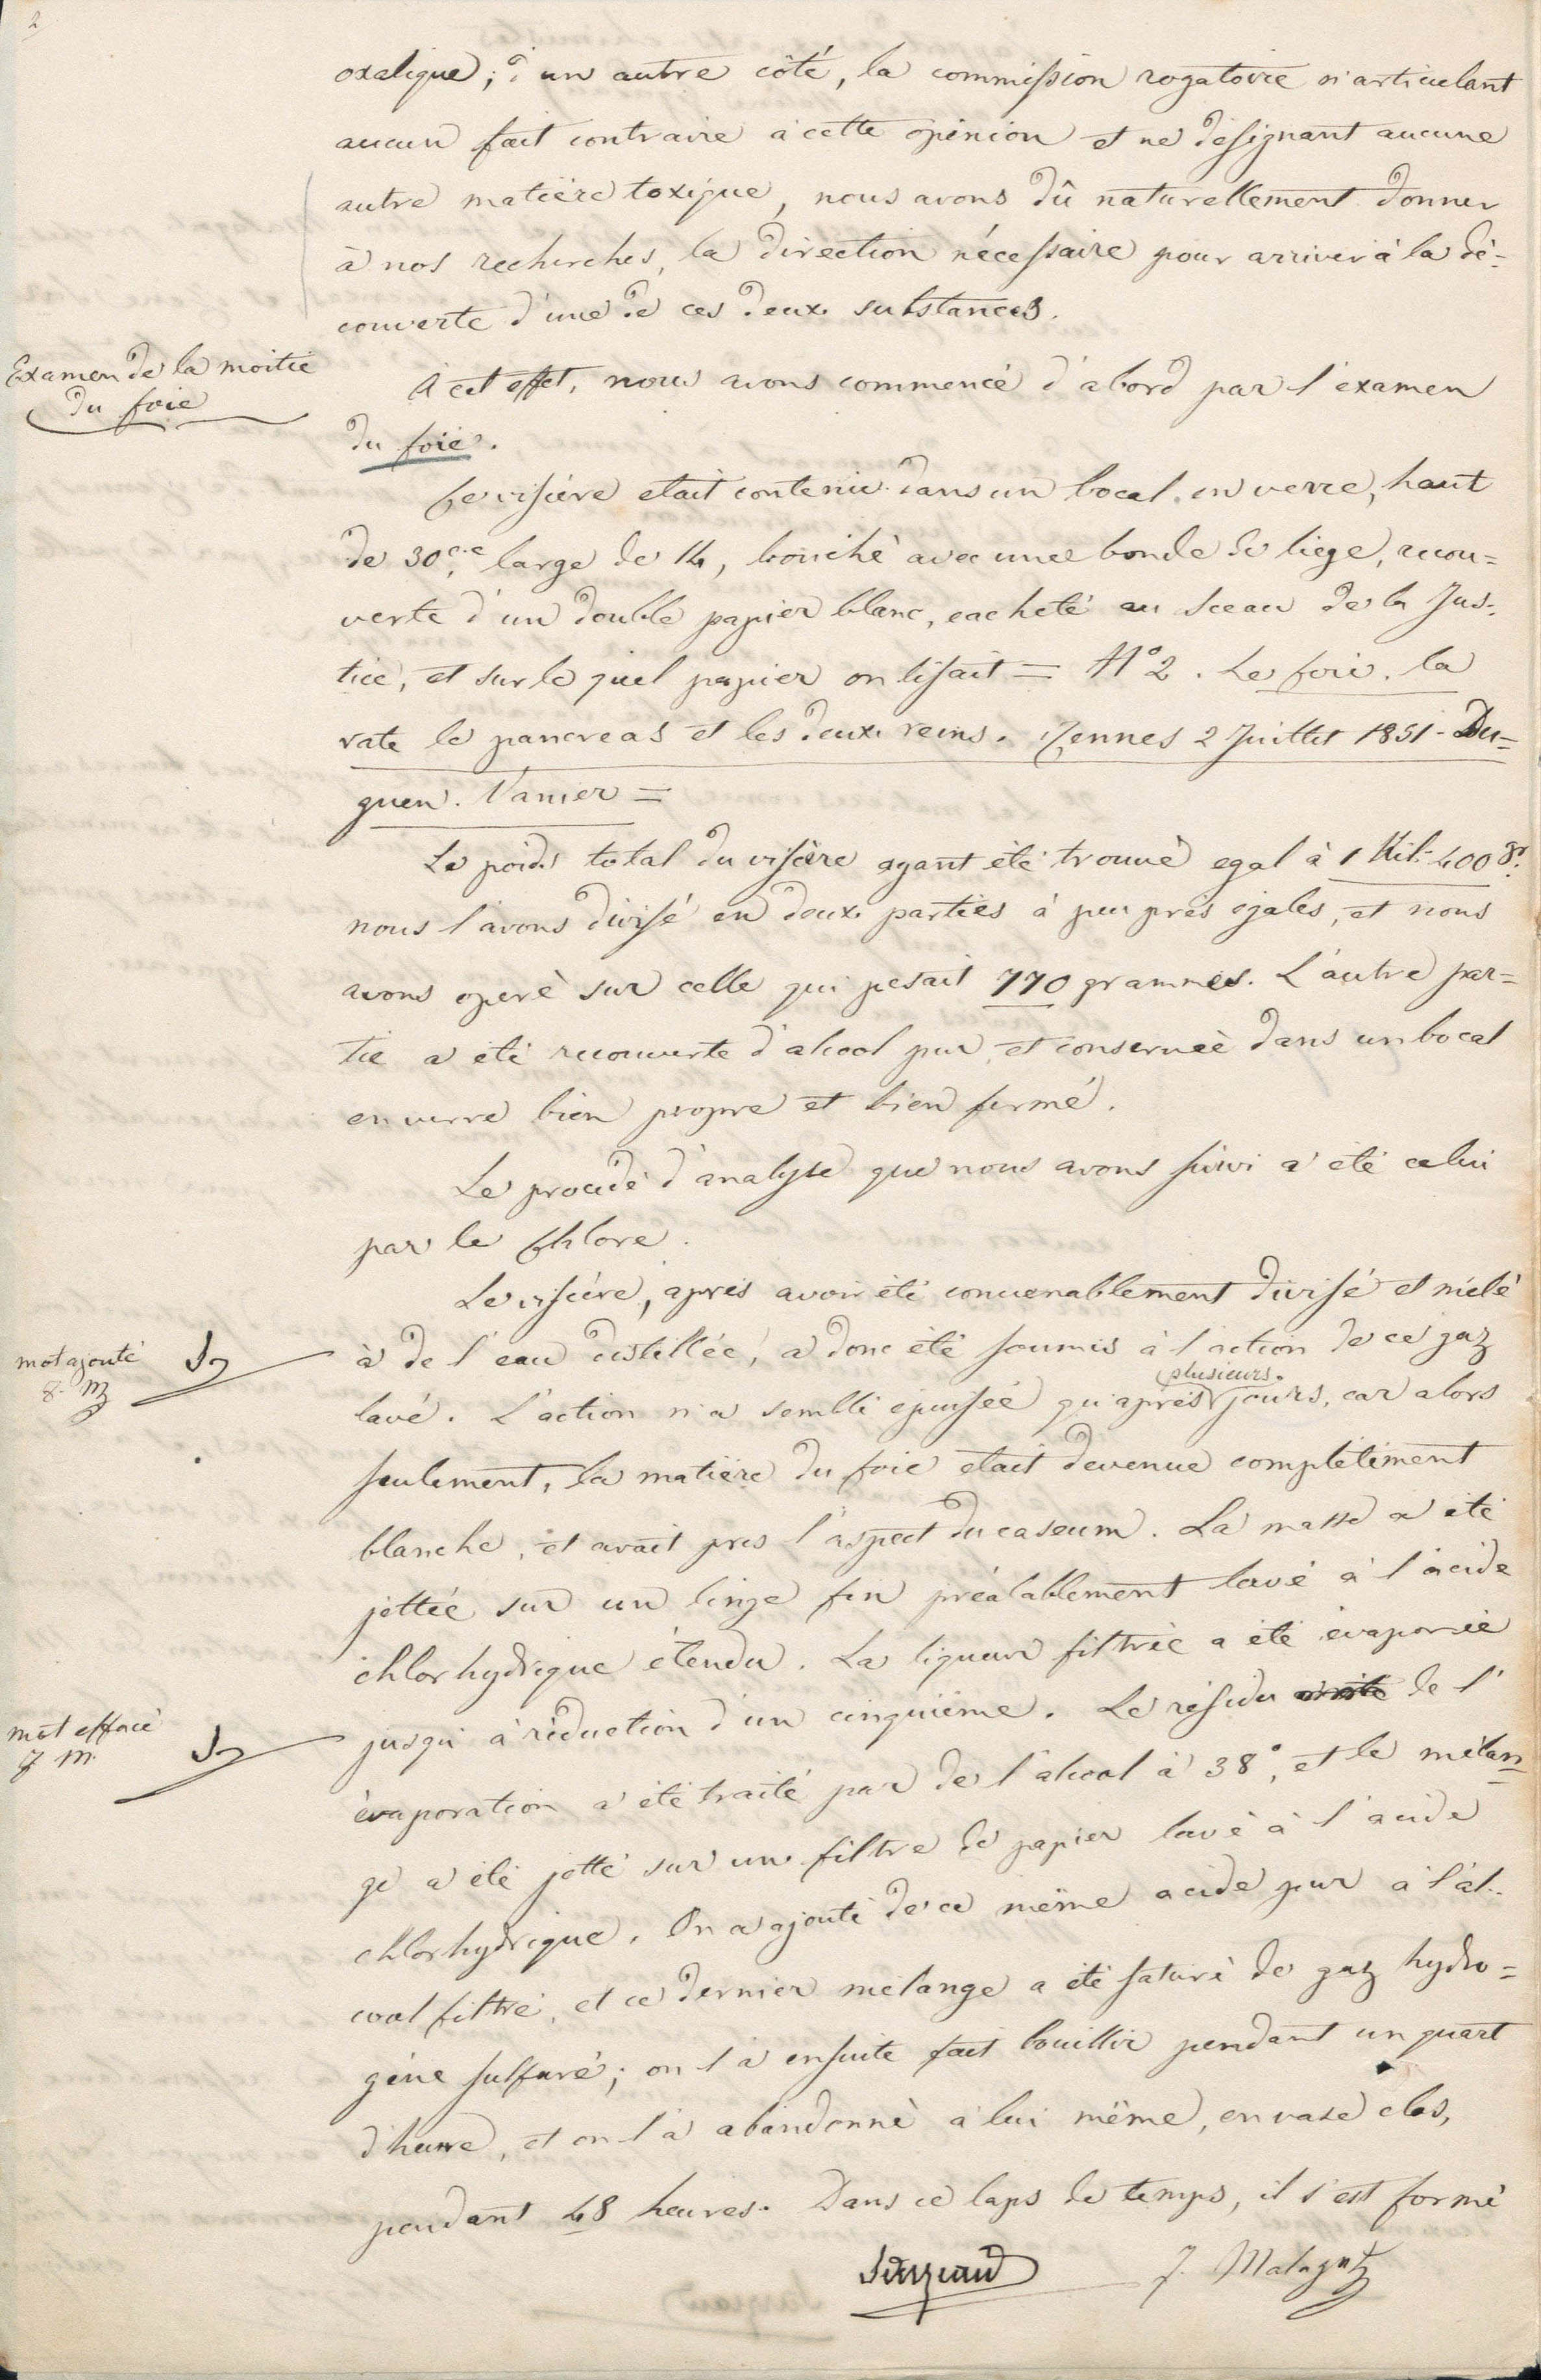 2
oxalique; d'un autre côté, la commission rogatoire n'articulant
aucun fait contraire à cette opinion et ne désignant aucune
autre matière toxique, nous avons dû naturellement donner
à nos recherches, la direction nécessaire pour arriver à la dé=
couverte d'une de ces deux substances.
Examen de la moitié
du foie
A cet effet, nous avons commencé d'abord par l'examen
du foie.
Ce viscère etait contenu dans un bocal en verre, haut
de 30 c.e large de 14, bouché avec une bonde de liege, recou=
verte d'un double papier blanc, cacheté au sceau de la Jus=
tice, et sur le quel papier on lisait = N° 2. Le foie. la
rate le pancreas et les deux reins. Rennes 2 Juillet 1851 - Du=
guen. Vanier =
Le poids total du viscère ayant été trouvé egal à 1 Kil. 400 gr.
nous l'avons divisé en deux parties à peu près egales, et nous
avons operé sur celle qui pesait 770 grammes. L'autre par=
tie a été recouverte d'alcool pur, et conservée dans un bocal
en verre bien propre et bien fermé.
Le procédé d'analyse que nous avons suivi a été celui
par le Chlore.
Le viscère, après avoir été convenablement divisé et mêlé
à de l'eau distillée, a donc été soumis à l'action de ce gaz
mot ajouté
J. M
plusieurs
lavé. L'action n'a semblé epuisée qu'après jours, car alors
seulement, la matière du foie etait devenue complètement
blanche, et avait pris l'aspect du caseum. La masse a été
jettée sur un linge fin préalablement lavé à l'acide
chlorhydrique étendu. La liqueur filtrée a été évaporée
jusqu'à réduction d'un cinquième. Le résidu de l'
mot effacé
J M.
évaporation a été traité par de l'alcool à 38°, et le mélan=
ge a été jetté sur un filtre de papier lavé à l'acide
chlorhydrique. On a ajouté de ce même acide pur à l'al-
cool filtré, et ce dernier mélange a été saturé de gaz hydro=
gène sulfuré; on l'a ensuite fait bouillir pendant un quart
d'heure, et on l'a abandonné à lui même, en vase clos,
pendant 48 heures. Dans ce laps de temps, il s'est formé
Sarzeaud J. Malaguti